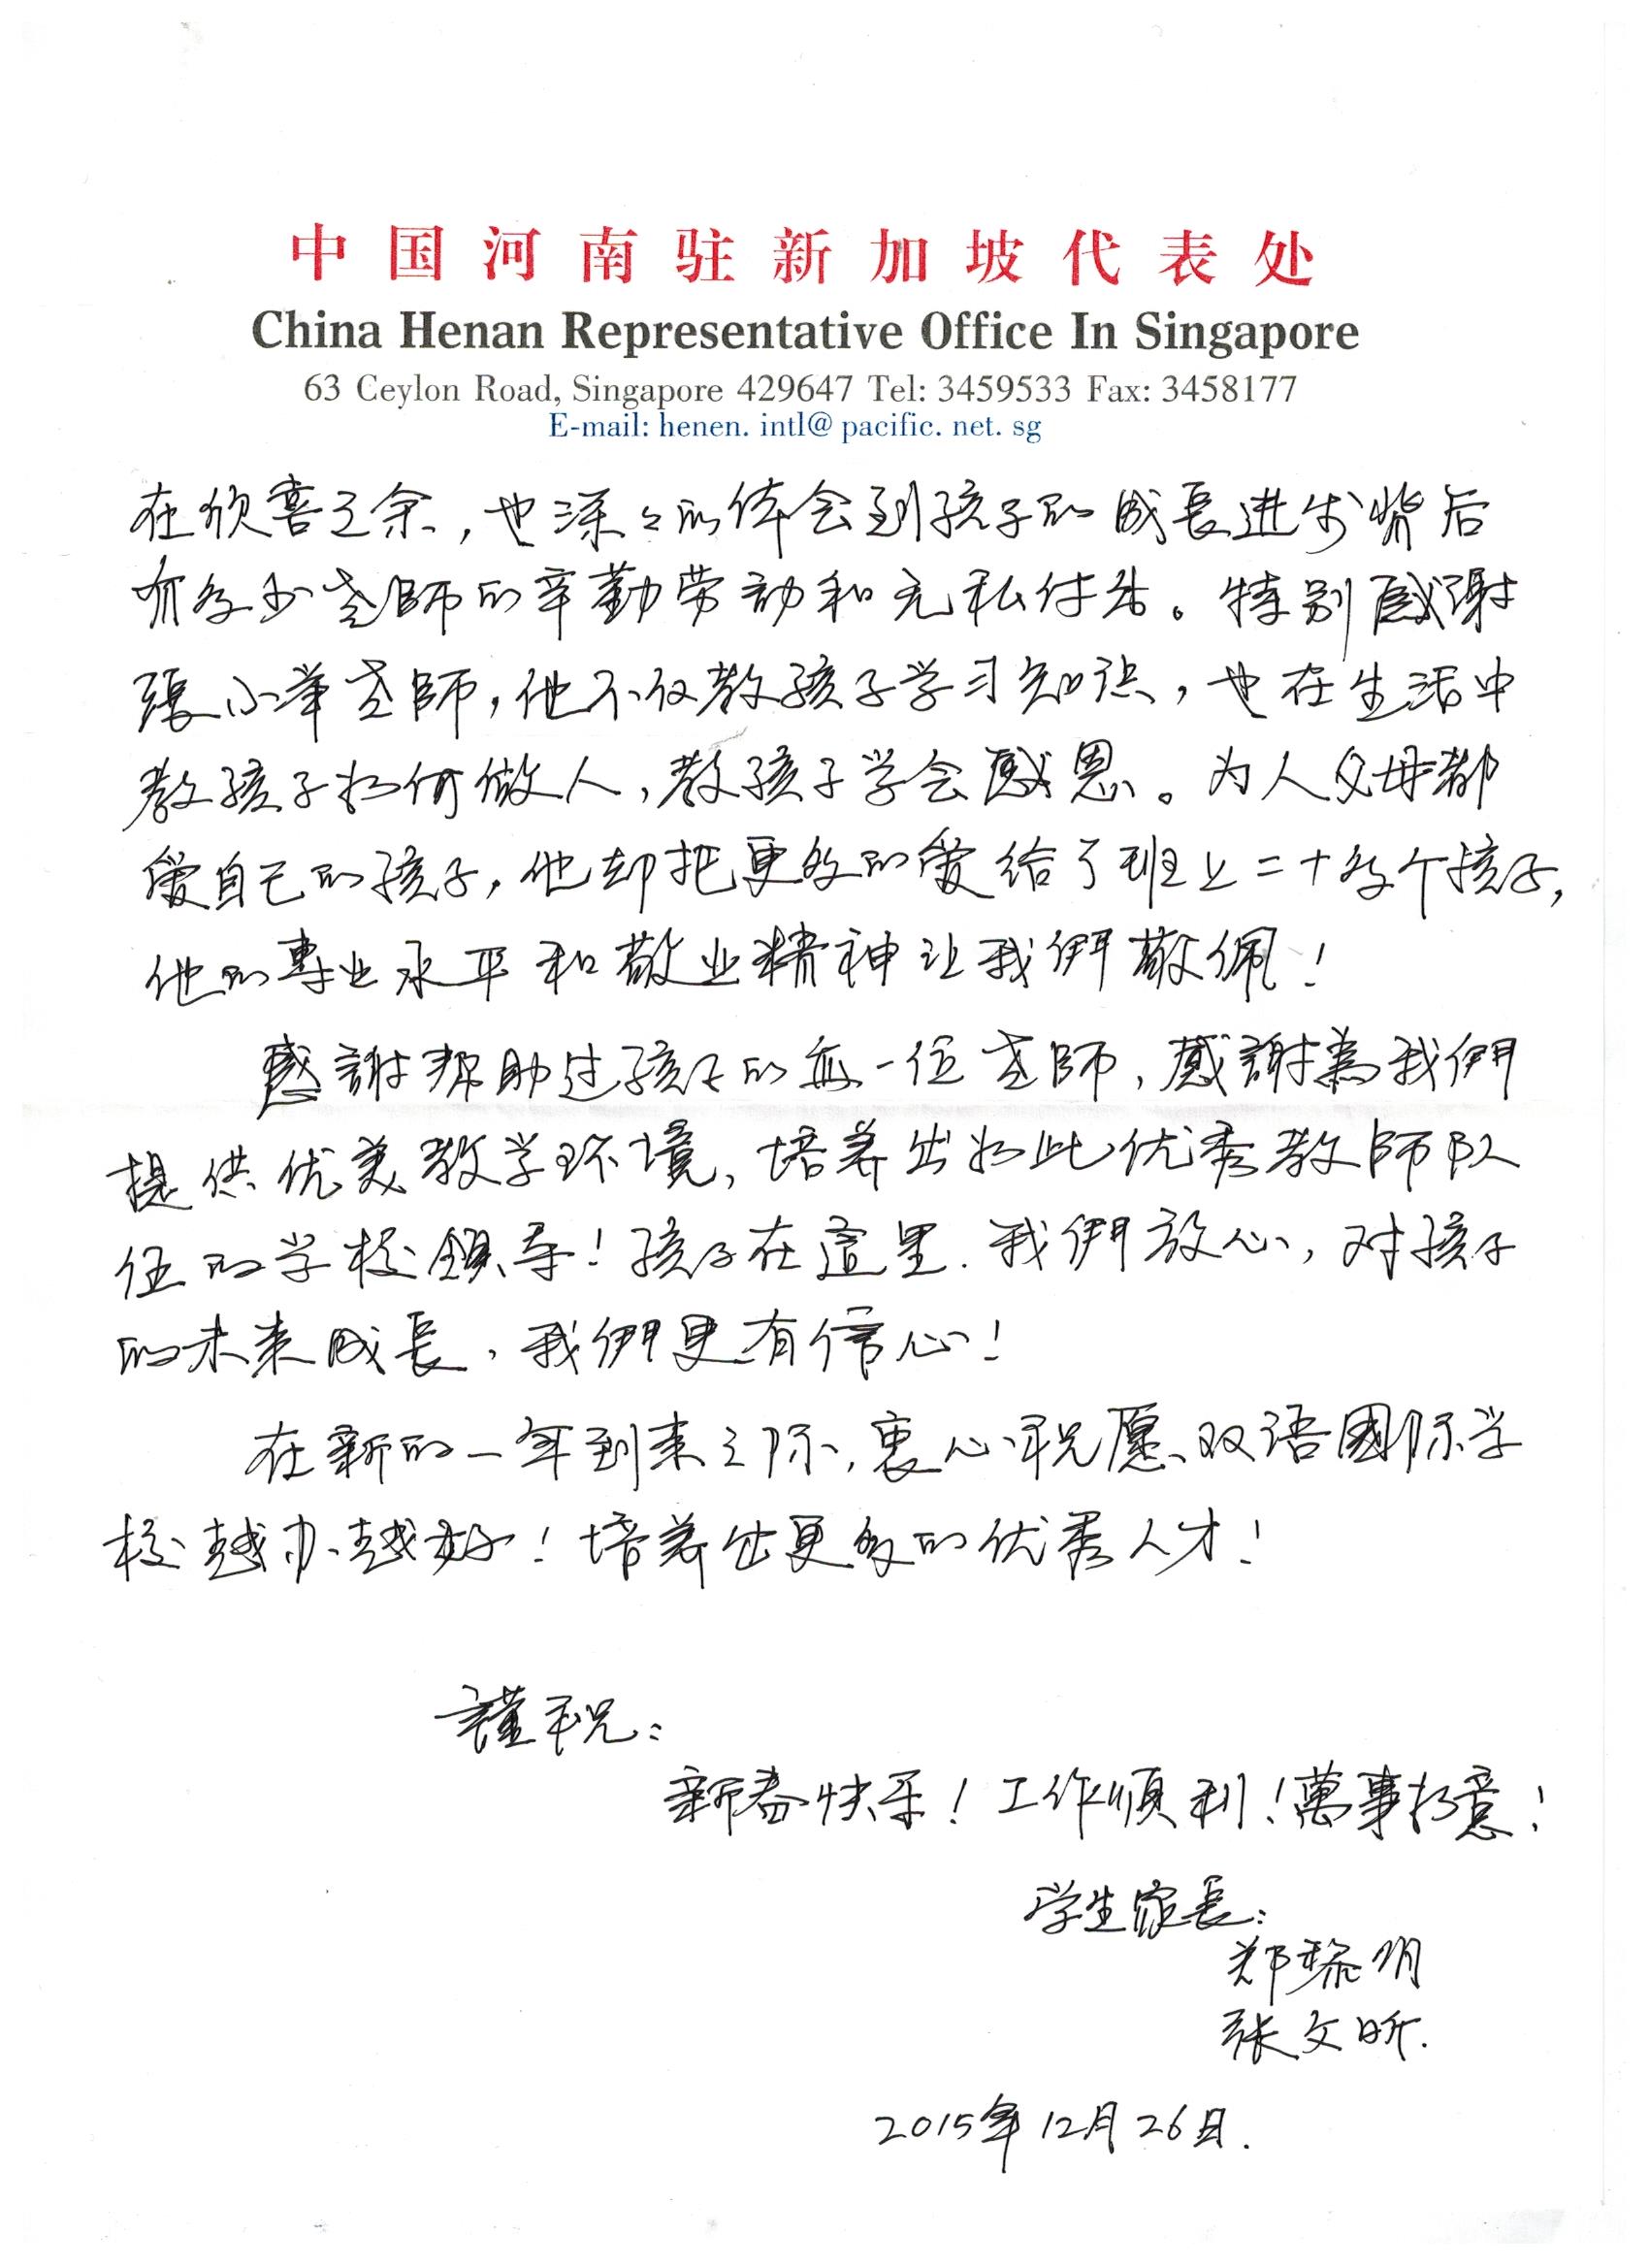 中国河南驻新加坡代表处
China Henan Representative Office In Singapore
63 Ceylon Road, Singapore 429647 Tel: 3459533 Fax: 3458177
E-mail: henen. intl@ pacific. net. sg
在欣喜之余，也深々的体会到孩子的成長进步背后
有多少老師的辛勤劳动和无私付出。特别感谢
張小举老師，他不仅教孩子学习知识，也在生活中
教孩子如何做人，教孩子学会感恩。为人父母都
爱自己的孩子，他却把更多的爱给了班上二十多个孩子，
他的專业水平和敬业精神让我們敬佩！
感謝帮助过孩子的每一位老師，感謝為我們
提供优美教学环境，培养出如此优秀教師队
伍的学校領导！孩子在這里．我們放心，对孩子
的未来成長，我們更有信心！
在新的一年到来之际，衷心祝愿双语國际学
校越办越好！培养出更多的优秀人才！
謹祝：
新春快乐！工作順利！萬事如意！
学生家長：
郑黎明
张文昕.
2015年12月26日.